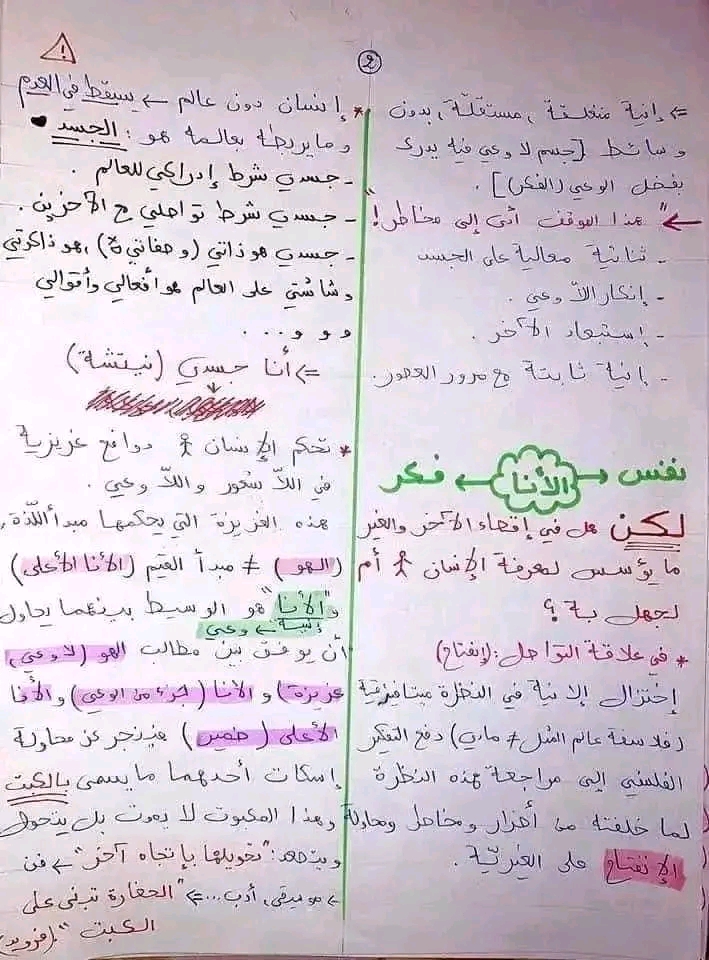 2
=> إنية منغلقة، مستقلّة، بدون
وسائط [جسم لا وعي فيه يدرك
بفضل الوعي (الفكر)].
← "هذا الموقف أتى إلى مخاطر!"
- ثنائية متعالية على الجسد
- إنكار اللاّوعي.
- إستبعاد الآخر.
- إنية ثابتة مع مرور العصور.
نفس ← الأنا → فكر
لكن هل في إقصاء الآخر والغير
ما يؤسس لمعرفة الإنسان أم
لجهل به؟
* في علاقة التواصل: (إنفتاح)
إختزال الإنية في النظرة ميتافيزيقية
(فلاسفة عالم المثل ≠ مادي) دفع التفكير
الفلسفي إلى مراجعة هذه النظرة
لما خلفته من أضرار ومخاطر ومحاولة
الإنفتاح على الغيريّة.
* إنسان دون عالم ← يسقط في العدم
وما يربطه بعالمه هو: الجسد
- جسدي شرط إدراكي للعالم.
- جسدي شرط تواصلي مع الآخرين.
- جسدي هو ذاتي (وصفاتي)، هو ذاكرتي
وشاشتي على العالم هو أفعالي وأقوالي
و و و...
=> أنا جسدي (نيتشة)
* تحكم الإنسان دوافع غريزية
في اللاّ شعور واللاّ وعي.
هذه الغريزة التي يحكمها مبدأ اللّذة،
(الهو) ≠ مبدأ القيم (الأنا الأعلى)
و"الأنا" هو الوسيط بينهما يحاول
إنية ← وعي
أن يوفق بين مطالب الهو (لا وعي،
غريزة) و الأنا (جزء من الوعي) والأنا
الأعلى (ضمير) فينجر عن محاولة
إسكات أحدهما ما يسمى بالكبت
وهذا المكبوت لا يموت بل يتحول
ويتصعد: "تحويلها بإتجاه آخر" ← فن
← موسيقى، أدب... => "الحضارة تبنى على
الكبت". (فرويد)